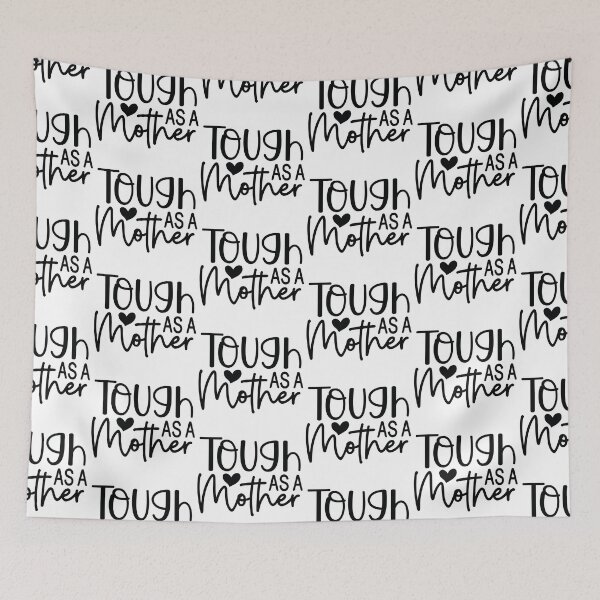 other
ugh
AS A
other
ugh
AS A
other
ugh
AS A
other
ugh
AS A
other
Tough
AS A
Mother
Tough
AS A
Mother
Tough
AS A
Mother
Tough
AS A
Mother
Tough
Mother
Tough
AS A
Mother
Tough
AS A
Mother
Tough
AS A
Mother
Tough
AS A
Mother
Tough
AS A
Mother
Tough
AS A
Mother
Tough
AS A
Mother
Tough
AS A
Mother
Tough
Mother
Tough
AS A
Mother
Tough
AS A
Mother
Tough
AS A
Mother
Tough
AS A
Mother
Tou
Mo
Tou
Mo
Tou
Mo
Tou
Mo
Tou